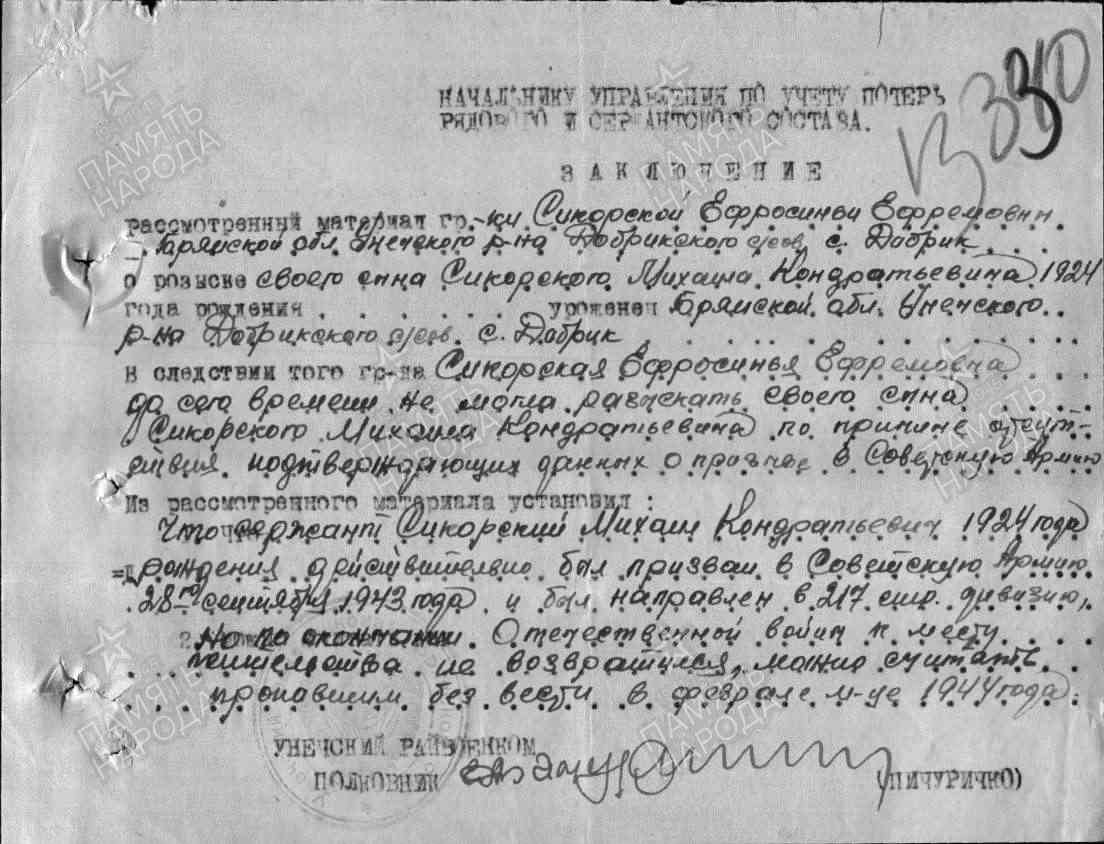 330
НАЧАЛЬНИКУ УПРАВЛЕНИЯ ПО УЧЕТУ ПОТЕРЬ
РЯДОВОГО И СЕРЖАНТСКОГО СОСТАВА.
ЗАКЛЮЧЕНИЕ
рассмотренный материал гр.-ки Сикорской Ефросиньи Ефремовны
Брянской обл. Унечского р-на Добрикского с/сов. с. Добрик
о розыске своего сына Сикорского Михаила Кондратьевича 1924
года рождения . . . . . . . уроженец Брянской обл. Унечского
р-на Добрикского с/сов. с. Добрик
в следствии того гр-ка Сикорская Ефросинья Ефремовна
до сего времени не могла разыскать своего сына
Сикорского Михаила Кондратьевича по причине отсут-
ствия подтверждающих данных о призыве в Советскую Армию
Из рассмотренного материала установил :
Что сержант Сикорский Михаил Кондратьевич 1924 года
рождения действительно был призван в Советскую Армию
28го сентября 1943 года и был направлен в 217 стр. дивизию,
Но по окончании Отечественной войны к месту
жительства не возвратился, можно считать
пропавшим без вести в феврале м-це 1944 года.
УНЕЧСКИЙ РАЙВОЕНКОМ
ПОЛКОВНИК (ПИЧУРИЧКО)
ПАМЯТЬ НАРОДА